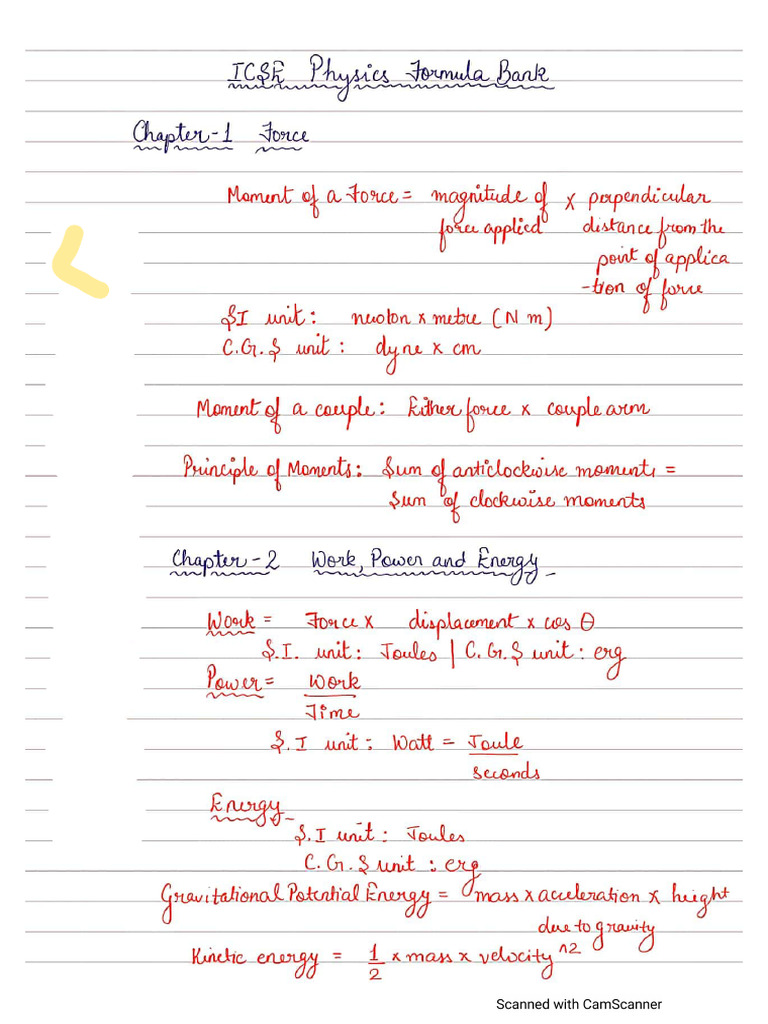 ICSE Physics Formula Bank
Chapter-1 Force
Moment of a Force = magnitude of x perpendicular
force applied distance from the
point of applica
-tion of force
S.I unit: newton x metre (N m)
C.G.S unit: dyne x cm
Moment of a couple: Either force x couple arm
Principle of Moments: Sum of anticlockwise moments =
Sum of clockwise moments
Chapter-2 Work, Power and Energy
Work = Force x displacement x cos θ
S.I. unit: Joules | C.G.S unit: erg
Power = Work
Time
S.I unit: Watt = Joule
seconds
Energy
S.I unit: Joules
C.G.S unit: erg
Gravitational Potential Energy = mass x acceleration x height
due to gravity
Kinetic energy = 1/2 x mass x velocity ^2
Scanned with CamScanner